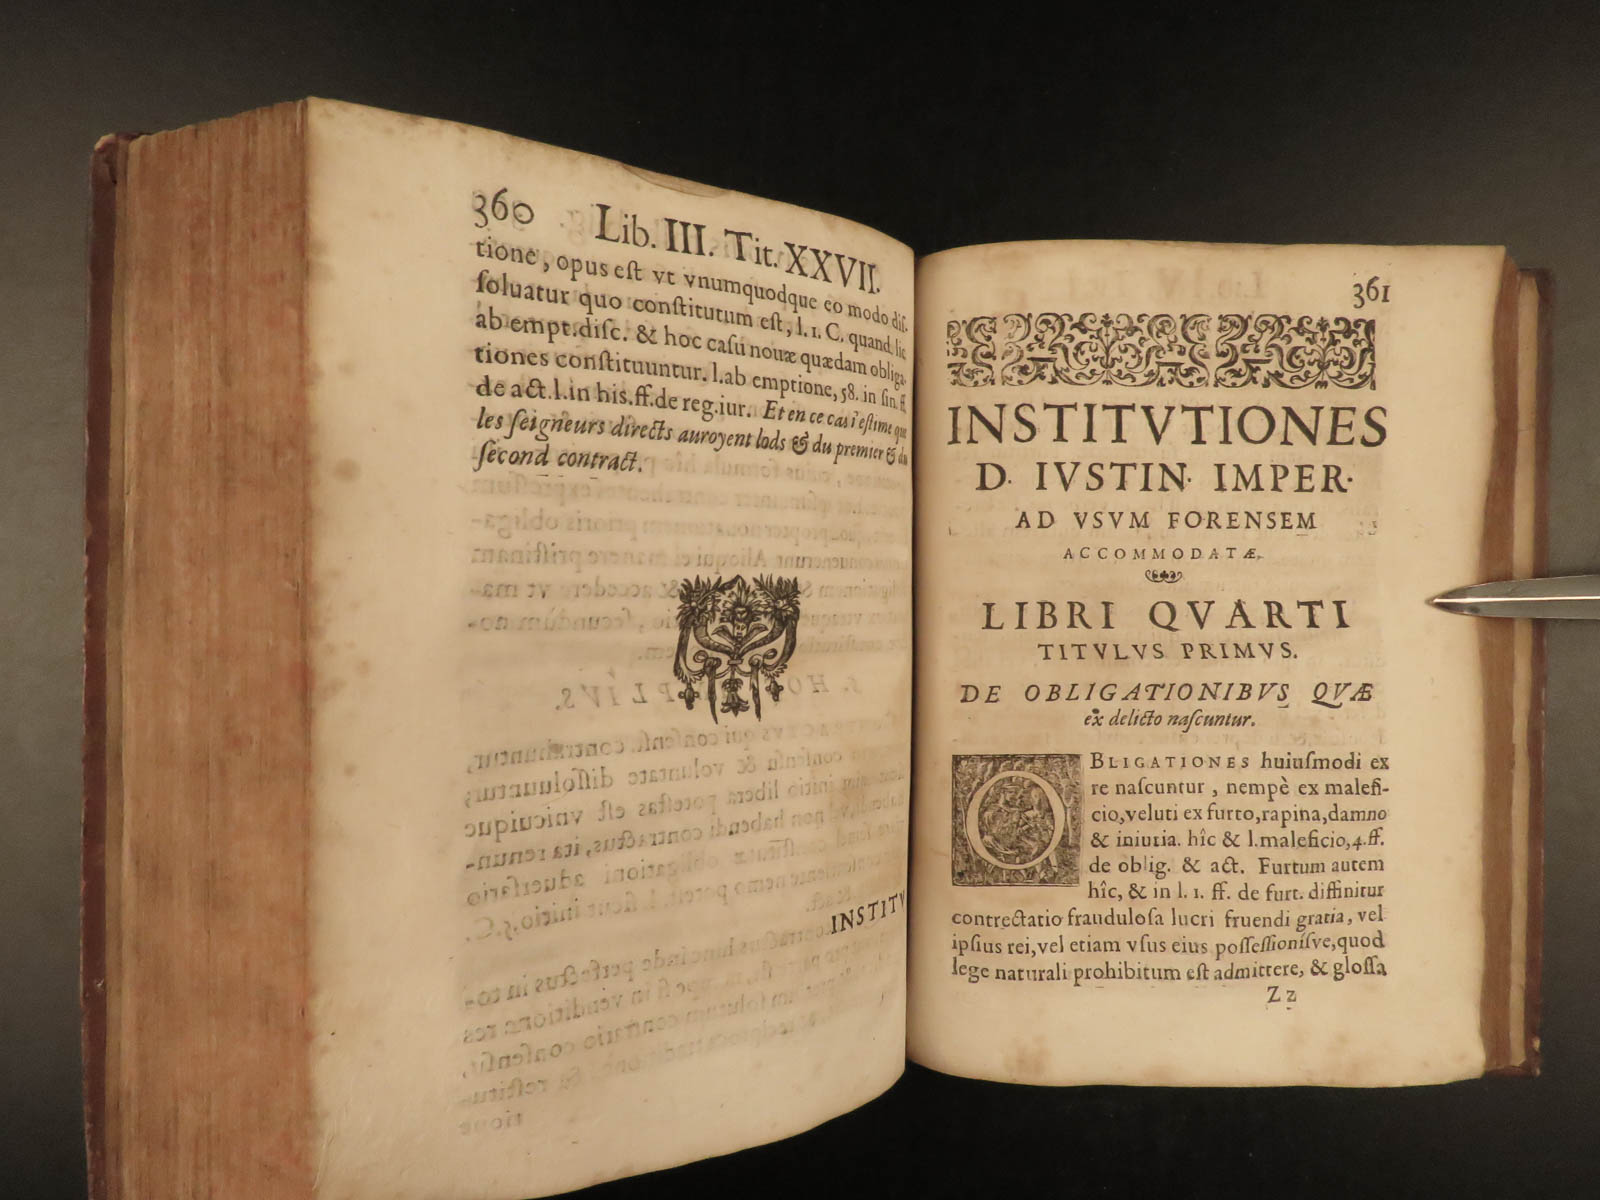 360 Lib. III. Tit. XXVII.
tione, opus est vt vnumquodque eo modo dis-
soluatur quo constitutum est, l. 1. C. quand. lic
ab empt. disc. & hoc casu nouæ quædam obliga-
tiones constituuntur. l. ab emptione, 58. in fin. ff.
de act. l. in his. ff. de reg. iur. Et en ce cas i'estime que
les seigneurs directs auroyent lods & du premier & du
second contract.
INSTITV
361
INSTITVTIONES
D. IVSTIN. IMPER.
AD VSVM FORENSEM
ACCOMMODATÆ.
LIBRI QVARTI
TITVLVS PRIMVS.
DE OBLIGATIONIBVS QVÆ
ex delicto nascuntur.
OBLIGATIONES huiusmodi ex
re nascuntur, nempè ex malefi-
cio, veluti ex furto, rapina, damno
& iniuria. hîc & l. maleficio, 4. ff.
de oblig. & act. Furtum autem
hîc, & in l. 1. ff. de furt. diffinitur
contrectatio fraudulosa lucri fruendi gratia, vel
ipsius rei, vel etiam vsus eius possessionisve, quod
lege naturali prohibitum est admittere, & glossa
Zz